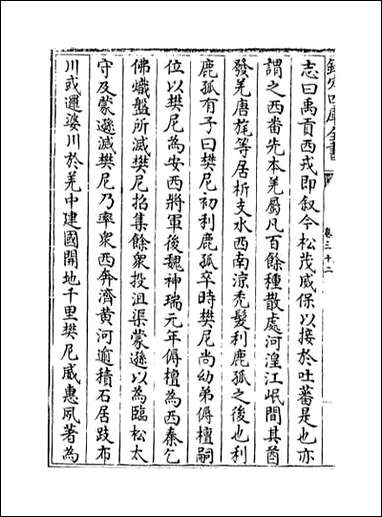 欽定四庫全書
卷三十二
志曰禹貢西戎即叙今松茂威保以接於吐蕃是也亦
謂之西番先本羌屬凡百餘種散處河湟江岷間其酋
發羌唐旄等居析支水西南涼禿髮利鹿孤之後也利
鹿孤有子曰樊尼初利鹿孤卒時樊尼尚幼弟傉檀嗣
位以樊尼為安西將軍後魏神瑞元年傉檀為西秦乞
佛熾盤所滅樊尼招集餘衆投沮渠蒙遜以為臨松太
守及蒙遜滅樊尼乃率衆西奔濟黃河逾積石居跂布
川或邏娑川於羌中建國開地千里樊尼威惠夙著為